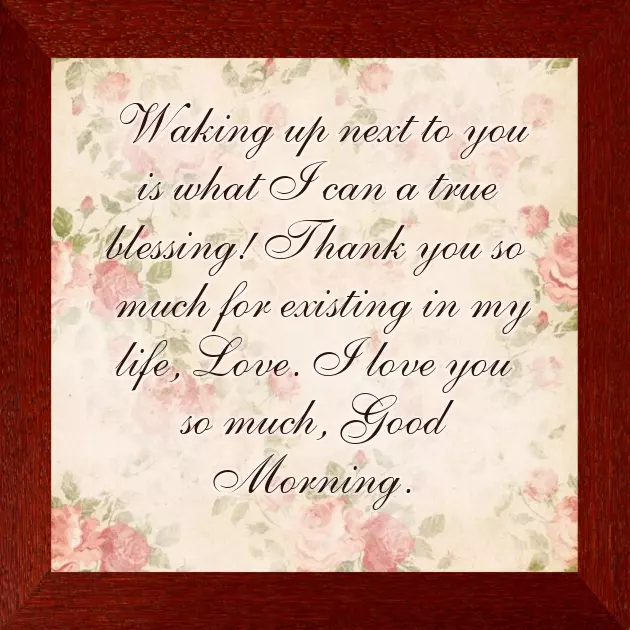 Waking up next to you
is what I can a true
blessing! Thank you so
much for existing in my
life, Love. I love you
so much, Good
Morning.